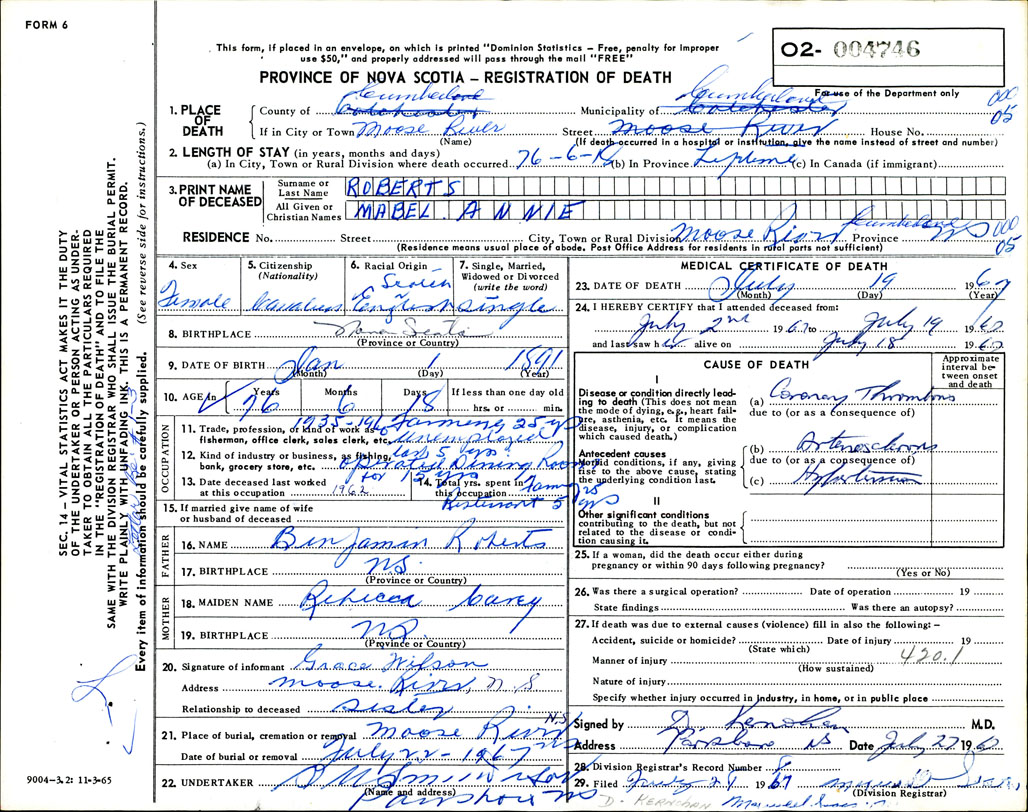 FORM 6
This form, if placed in an envelope, on which is printed "Dominion Statistics – Free, penalty for improper
use $50," and properly addressed will pass through the mail "FREE"
02- 004746
PROVINCE OF NOVA SCOTIA – REGISTRATION OF DEATH
For use of the Department only
1. PLACE OF DEATH
County of Cumberland Colchester Municipality of Cumberland Colchester 000 05
If in City or Town Moose River Street Moose River House No.
(Name) (If death occurred in a hospital or institution, give the name instead of street and number)
2. LENGTH OF STAY (in years, months and days)
(a) In City, Town or Rural Division where death occurred 76-6-18 (b) In Province Lifetime (c) In Canada (if immigrant)
3. PRINT NAME OF DECEASED
Surname or Last Name ROBERTS
All Given or Christian Names MABEL ANNIE
RESIDENCE No. Street City, Town or Rural Division Moose River Cumberland Province NS 000 05
(Residence means usual place of abode. Post Office Address for residents in rural parts not sufficient)
4. Sex Female
5. Citizenship (Nationality) Canadian
6. Racial Origin Scotch English
7. Single, Married, Widowed or Divorced (write the word) Single
8. BIRTHPLACE Nova Scotia
(Province or Country)
9. DATE OF BIRTH Jan 1 1891
(Month) (Day) (Year)
10. AGE in Years 76 Months 6 Days 18 If less than one day old
hrs. or min.
OCCUPATION
11. Trade, profession, or kind of work as fisherman, office clerk, sales clerk, etc. 1935-196 Farming 25 yrs unemployed
12. Kind of industry or business, as fishing, bank, grocery store, etc. last 5 yrs operated Dining Room
for 15 yrs
13. Date deceased last worked at this occupation 1962
14. Total yrs. spent in this occupation Farm 25
Resturant 5 yrs
15. If married give name of wife or husband of deceased
FATHER
16. NAME Binjamin Roberts
17. BIRTHPLACE N.S.
(Province or Country)
MOTHER
18. MAIDEN NAME Rebecca Carey
19. BIRTHPLACE N.S.
(Province or Country)
20. Signature of informant Grace Wilson
Address Moose River, N.S
Relationship to deceased sister
21. Place of burial, cremation or removal Moose River N.S
Date of burial or removal July 22-1967
22. UNDERTAKER
(Name and address)
Parrsboro NS
MEDICAL CERTIFICATE OF DEATH
23. DATE OF DEATH July 19 1967
(Month) (Day) (Year)
24. I HEREBY CERTIFY that I attended deceased from:
July 2nd 1967 to July 19 1967
and last saw her alive on July 18 1967
CAUSE OF DEATH
Approximate interval between onset and death
I
Disease or condition directly leading to death (This does not mean the mode of dying, e.g., heart failure, asthenia, etc. it means the disease, injury, or complication which caused death.)
(a) Coronary Thrombosis
due to (or as a consequence of)
Antecedent causes
Morbid conditions, if any, giving rise to the above cause, stating the underlying condition last.
(b) Arteriosclerosis
due to (or as a consequence of)
(c) Hypertension
II
Other significant conditions
contributing to the death, but not related to the disease or condition causing it.
25. If a woman, did the death occur either during
pregnancy or within 90 days following pregnancy?
(Yes or No)
26. Was there a surgical operation? Date of operation 19
State findings Was there an autopsy?
27. If death was due to external causes (violence) fill in also the following: –
Accident, suicide or homicide? Date of injury 19
(State which)
Manner of injury 420.1
(How sustained)
Nature of injury
Specify whether injury occurred in industry, in home, or in public place
Signed by D. Kernohan M.D.
Address Parrsboro NS Date July 27 1967
28. Division Registrar's Record Number 8
29. Filed July 29 1967
(Division Registrar)
D. KERNOHAN
SEC. 14 – VITAL STATISTICS ACT MAKES IT THE DUTY
OF THE UNDERTAKER OR PERSON ACTING AS UNDER-
TAKER TO OBTAIN ALL THE PARTICULARS REQUIRED
IN THE "REGISTRATION OF DEATH" AND TO FILE THE
SAME WITH THE DIVISION REGISTRAR WHO SHALL ISSUE THE BURIAL PERMIT.
WRITE PLAINLY WITH UNFADING INK. THIS IS A PERMANENT RECORD.
Every item of information should be carefully supplied. (See reverse side for instructions.)
9004–3.2: 11-3-65